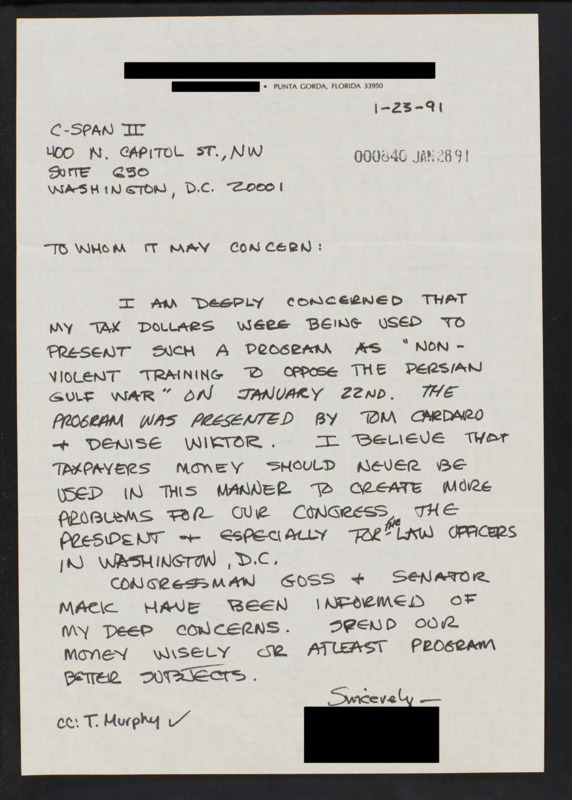 • PUNTA GORDA, FLORIDA 33950
1-23-91
C-SPAN II
400 N. CAPITOL ST., NW
000840 JAN 28 91
SUITE 650
WASHINGTON, D.C. 20001
TO WHOM IT MAY CONCERN:
I AM DEEPLY CONCERNED THAT
MY TAX DOLLARS WERE BEING USED TO
PRESENT SUCH A PROGRAM AS "NON-
VIOLENT TRAINING TO OPPOSE THE PERSIAN
GULF WAR" ON JANUARY 22ND. THE
PROGRAM WAS PRESENTED BY TOM CARDARO
+ DENISE WIKTOR. I BELIEVE THAT
TAXPAYERS MONEY SHOULD NEVER BE
USED IN THIS MANNER TO CREATE MORE
PROBLEMS FOR OUR CONGRESS, THE
PRESIDENT + ESPECIALLY FOR THE LAW OFFICERS
IN WASHINGTON, D.C.
CONGRESSMAN GOSS + SENATOR
MACK HAVE BEEN INFORMED OF
MY DEEP CONCERNS. SPEND OUR
MONEY WISELY OR ATLEAST PROGRAM
BETTER SUBJECTS.
Sincerely —
cc: T. Murphy ✓